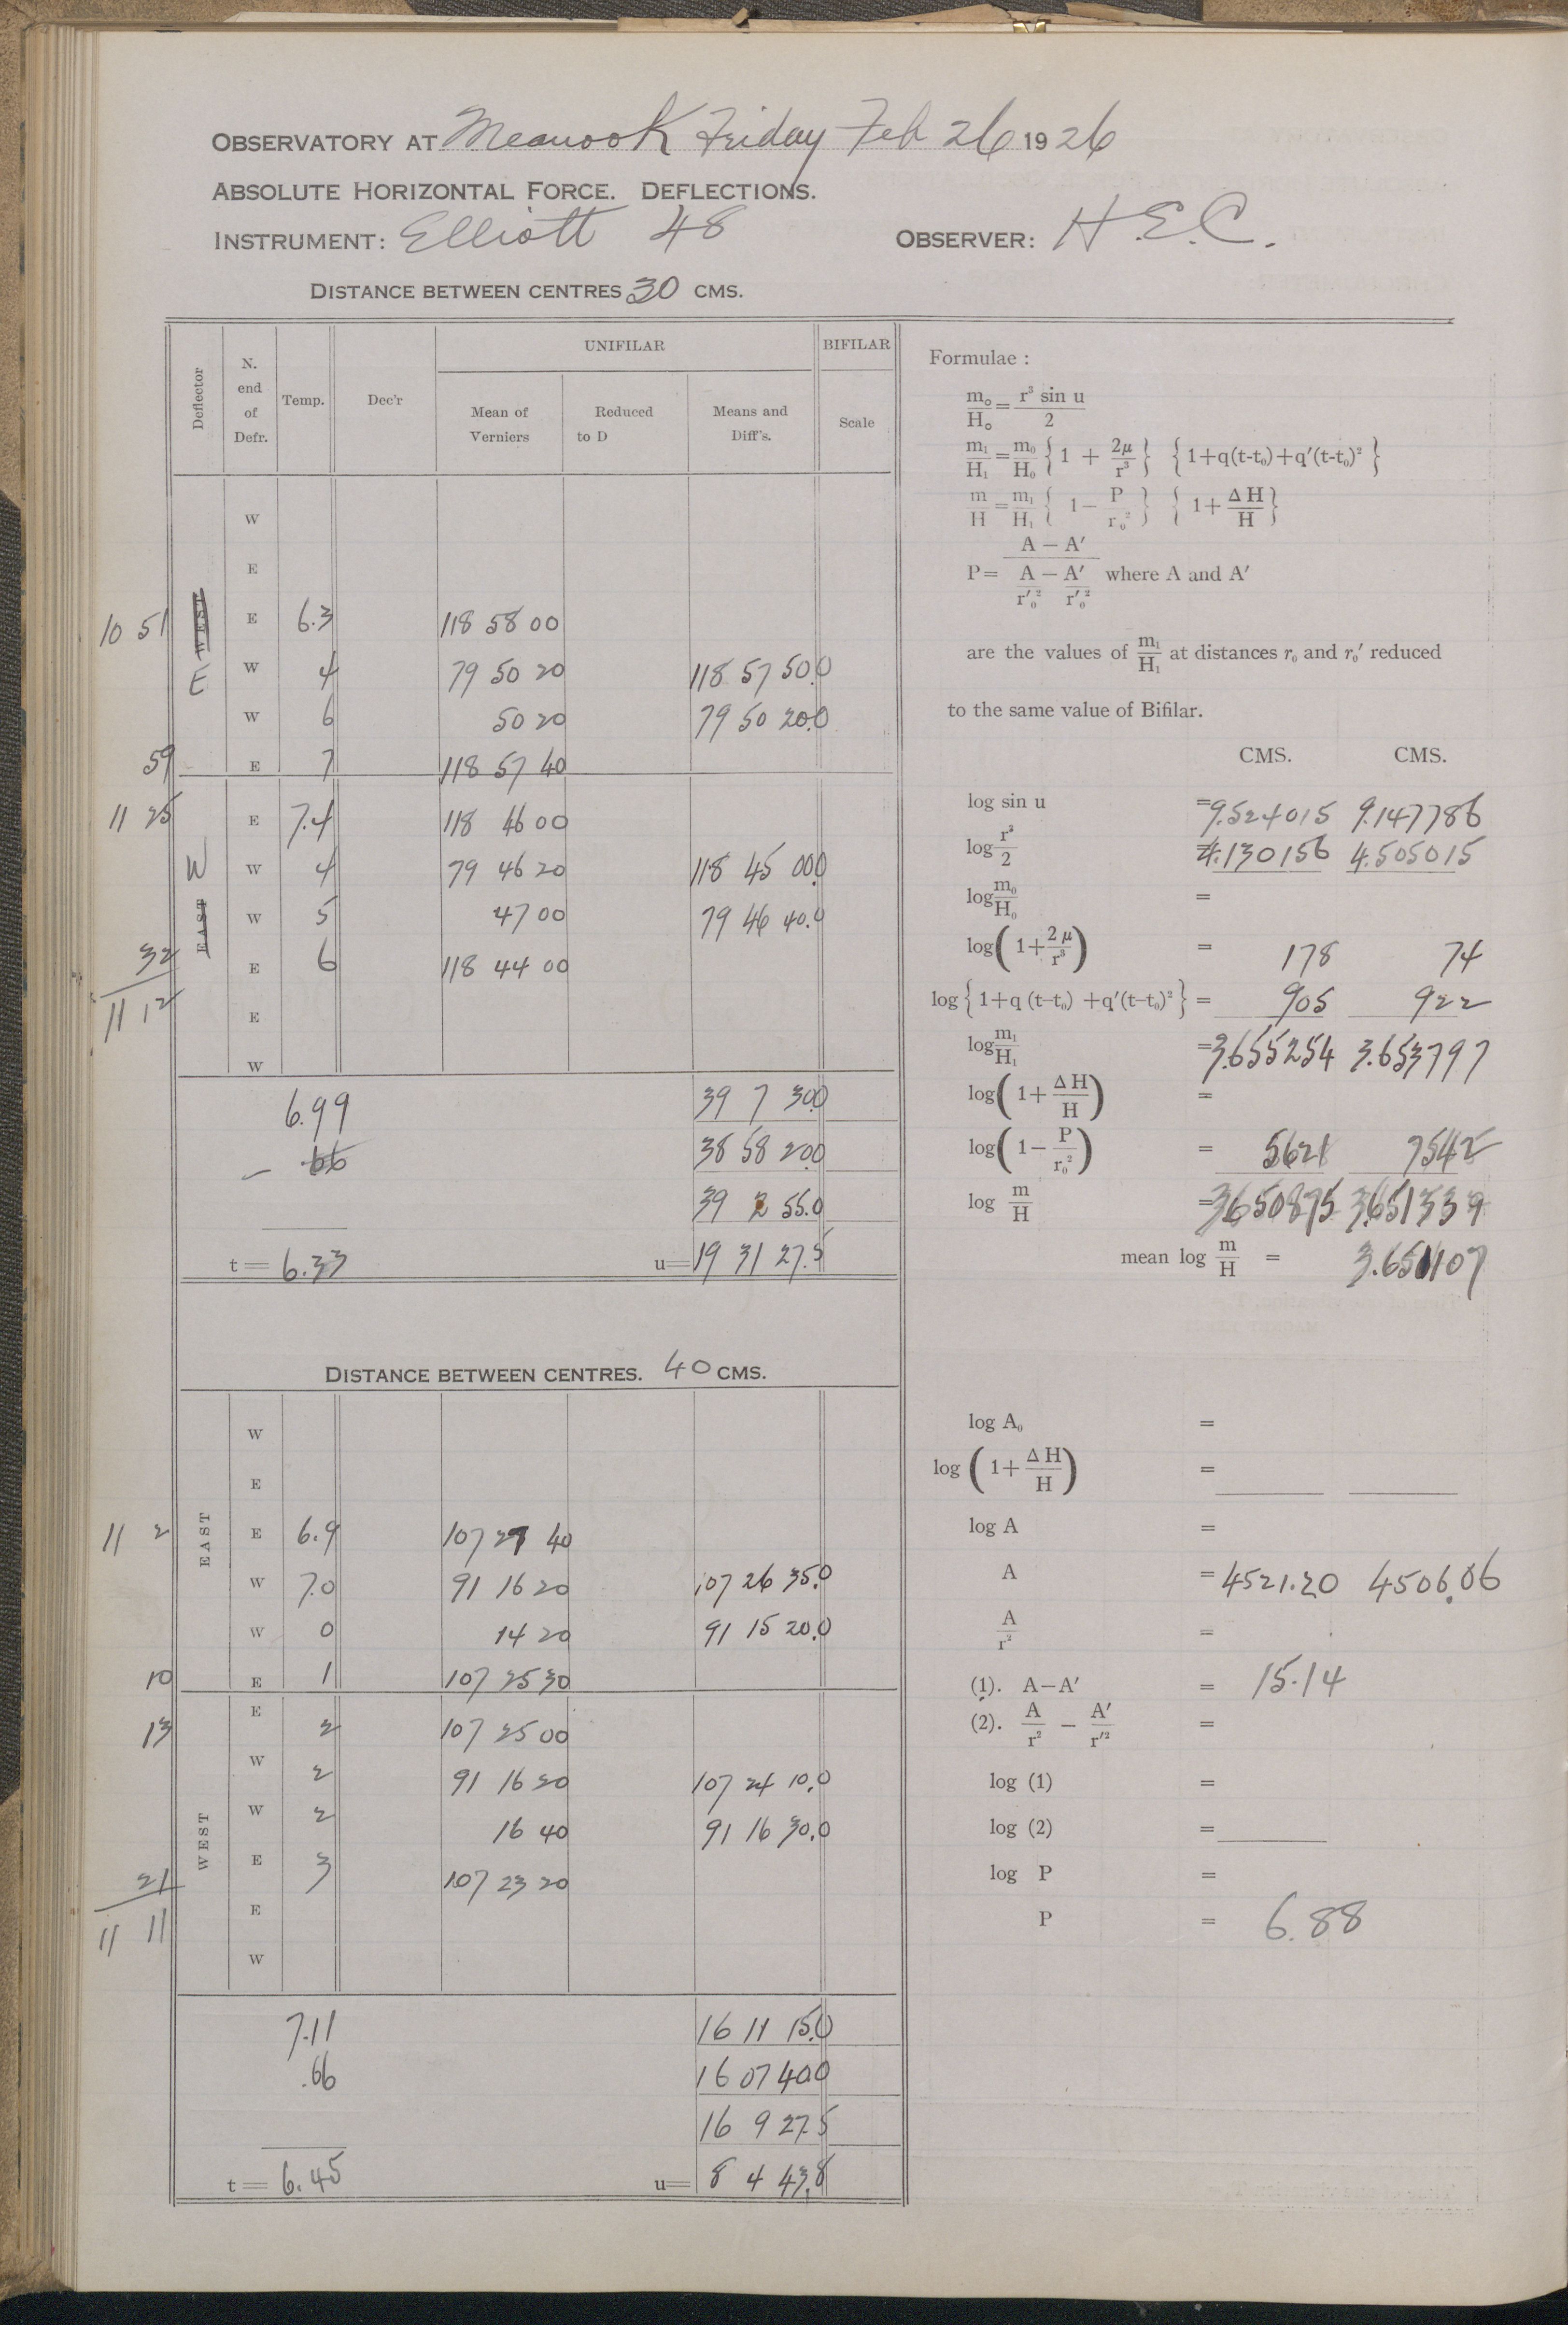 OBSERVATORY AT Meanook Friday Feb 26 1926
ABSOLUTE HORIZONTAL FORCE. DEFLECTIONS.
INSTRUMENT: Elliott 48 OBSERVER: H.E.C.
DISTANCE BETWEEN CENTRES 30 CMS.
Deflector N. end of Defr. Temp. Dec'r UNIFILAR BIFILAR
Mean of Verniers Reduced to D Means and Diff's. Scale
W
E
10 51 WEST E 6.3 118 58 00
E W 4 79 50 20 118 57 50.0
W 6 50 20 79 50 20.0
59 E 7 118 57 40
11 25 E 7.4 118 46 00
W W 4 79 46 20 118 45 00.0
EAST W 5 47 00 79 46 40.0
32 E 6 118 44 00
11 12 E
W
6.99 39 7 30.0
— .66 38 58 20.0
39 2 55.0
t = 6.33 u = 19 31 27.5
Formulae :
m₀/H₀ = r³ sin u / 2
m₁/H₁ = m₀/H₀ {1 + 2μ/r³} {1+q(t-t₀)+q′(t-t₀)²}
m/H = m₁/H₁ {1 − P/r₀²} {1+ ΔH/H}
P = (A − A′) / (A/r′₀² − A′/r′₀²) where A and A′
are the values of m₁/H₁ at distances r₀ and r₀′ reduced
to the same value of Bifilar.
CMS. CMS.
log sin u = 9.524015 9.147786
log r³/2 = 4.130156 4.505015
log m₀/H₀ =
log(1+ 2μ/r³) = 178 74
log{1+q (t-t₀) +q′(t-t₀)²} = 905 922
log m₁/H₁ = 3.655254 3.653797
log(1+ ΔH/H) =
log(1− P/r₀²) =
log m/H = 3650875 3.651339
mean log m/H = 3.651107
DISTANCE BETWEEN CENTRES. 40 CMS.
W
E
11 2 EAST E 6.9 107 27 40
W 7.0 91 16 20 107 26 35.0
W 0 14 20 91 15 20.0
10 E 1 107 25 30
13 E 2 107 25 00
W 2 91 16 20 107 24 10.0
WEST W 2 16 40 91 16 30.0
21 E 3 107 23 20
11 11 E
W
7.11 16 11 15.0
.66 16 07 40.0
16 9 27.5
t = 6.45 u = 8 4 43.8
log A₀ =
log (1+ ΔH/H) =
log A =
A = 4521.20 4506.06
A/r² =
(1). A−A′ = 15.14
(2). A/r² − A′/r′² =
log (1) =
log (2) =
log P =
P = 6.88